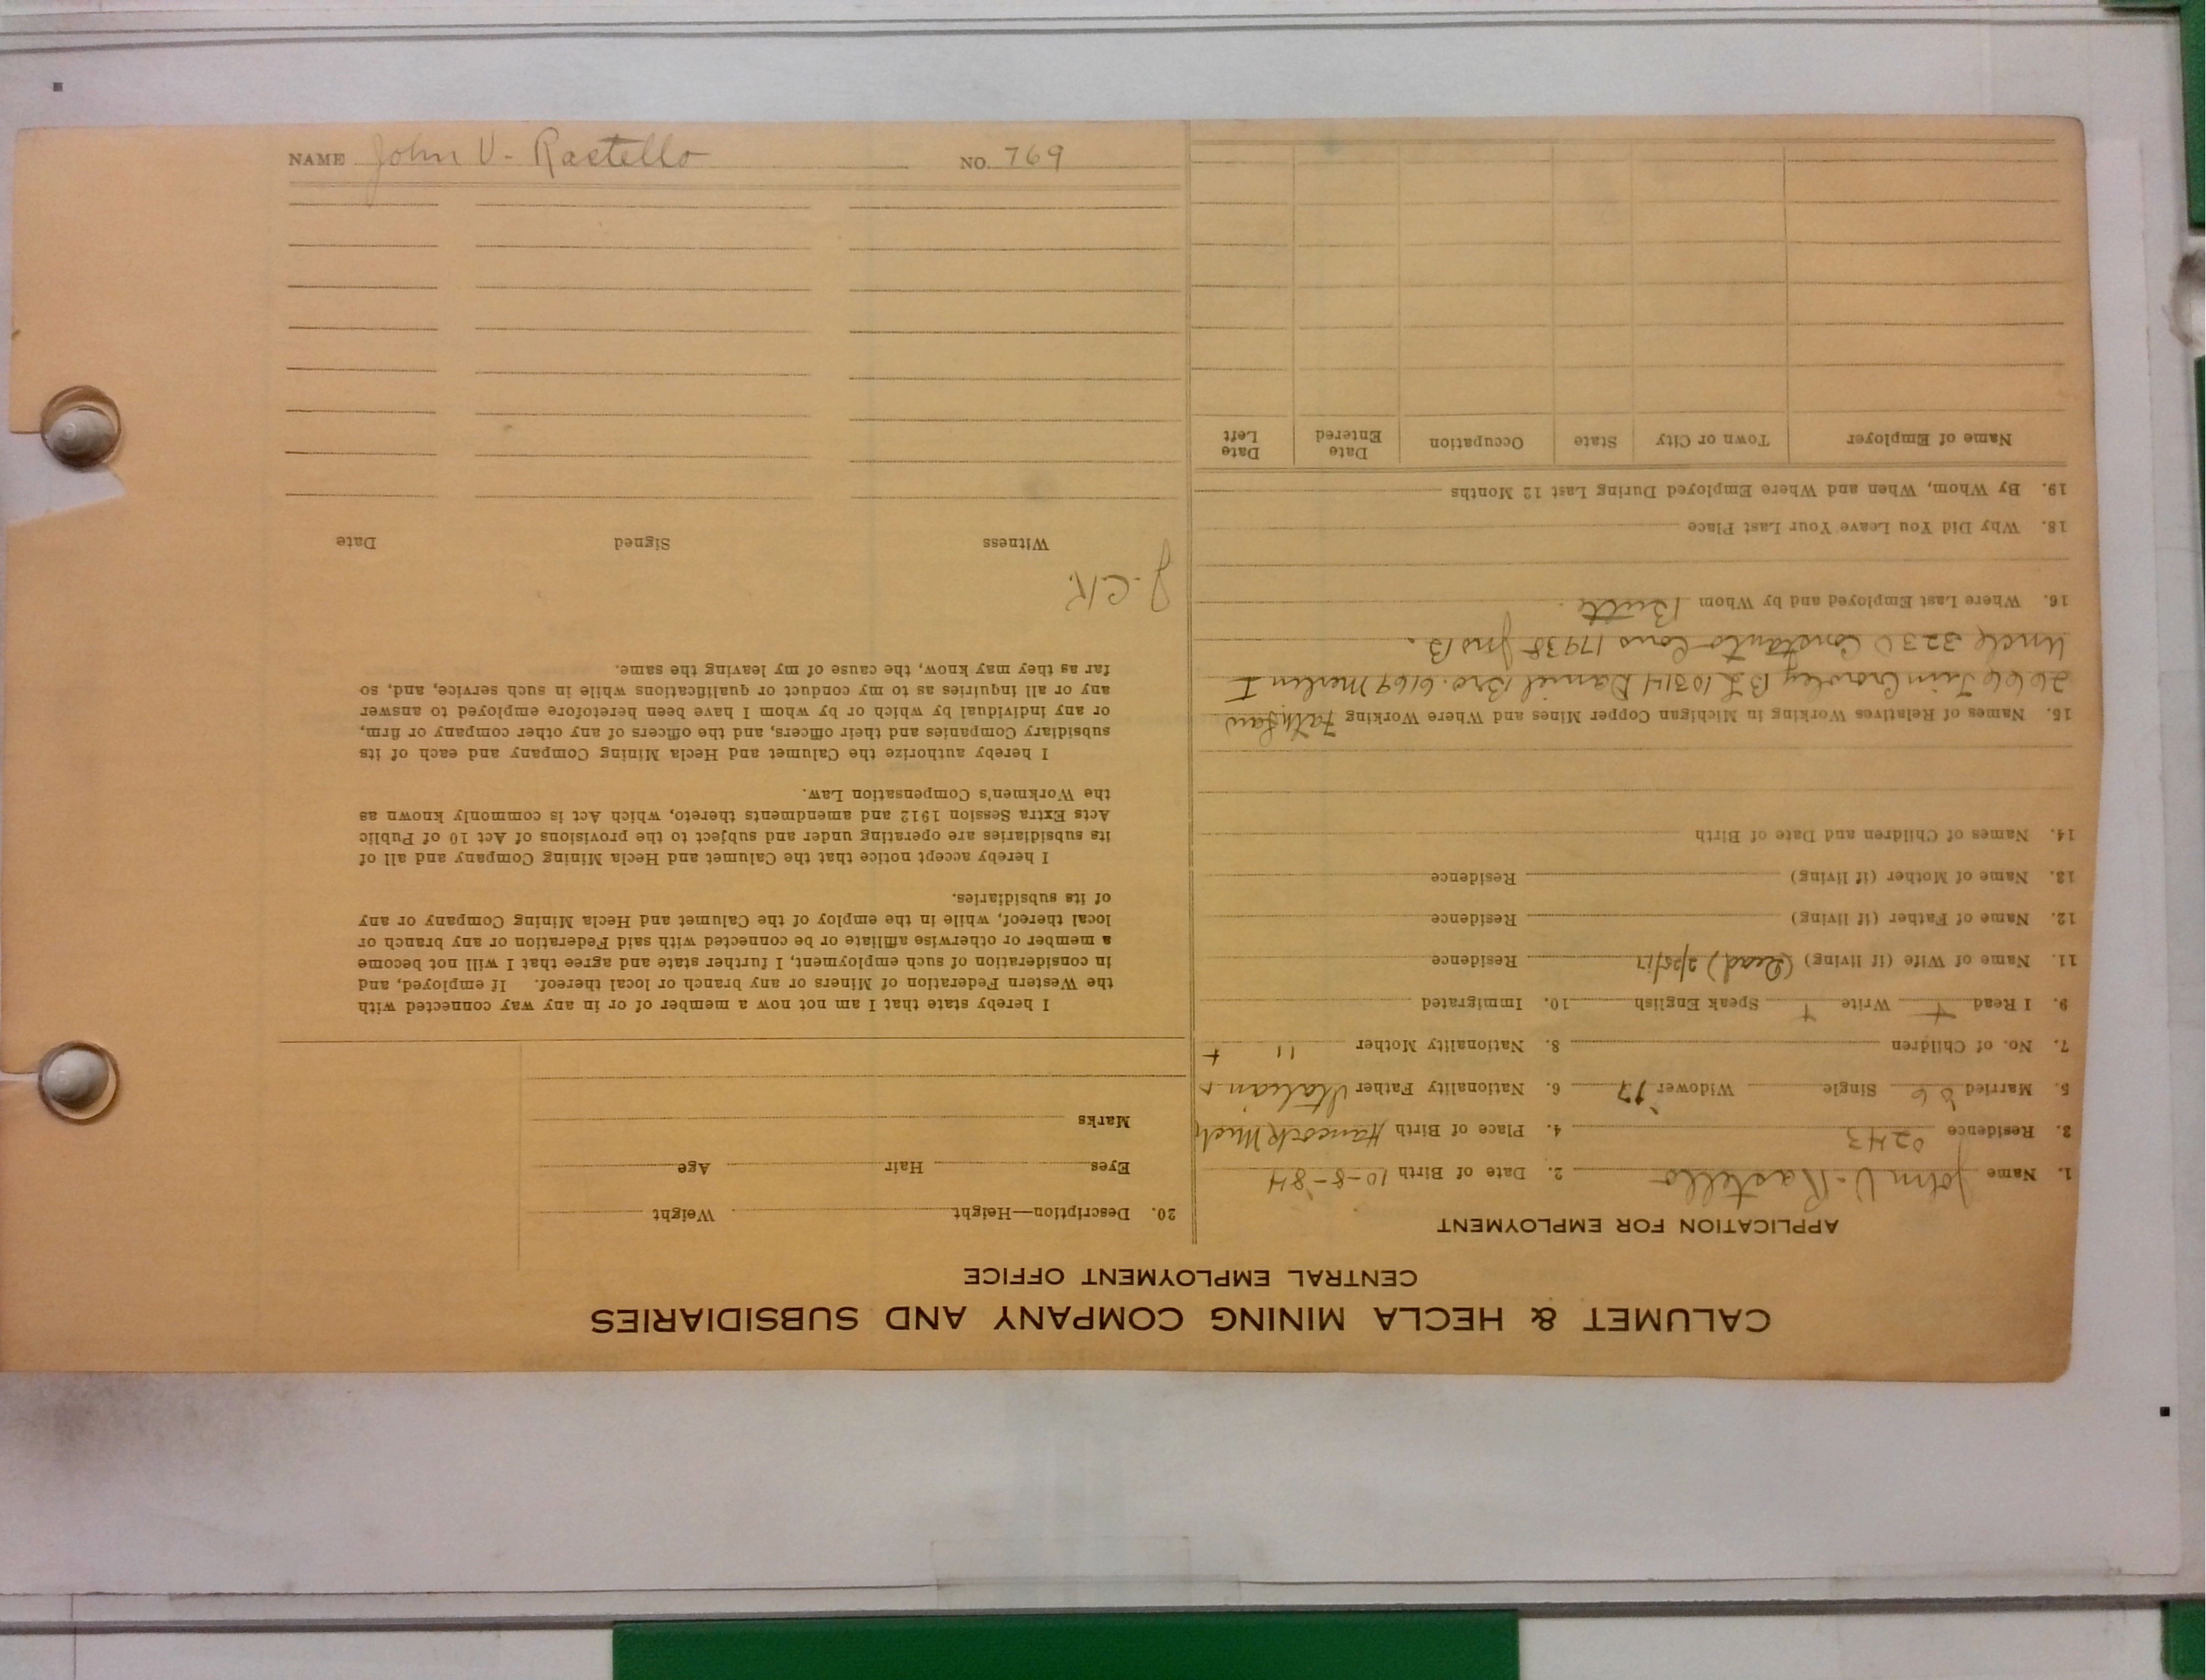 CALUMET & HECLA MINING COMPANY AND SUBSIDIARIES
CENTRAL EMPLOYMENT OFFICE
APPLICATION FOR EMPLOYMENT
1. Name John V. Rastello 2. Date of Birth 10-8-84
3. Residence 0243 4. Place of Birth Hancock Mich
5. Married 06 Single Widower '17 6. Nationality Father Italian +
7. No. of Children 8. Nationality Mother " +
9. I Read + Write + Speak English 10. Immigrated
11. Name of Wife (if living) (Dead) 2/25/17 Residence
12. Name of Father (if living) Residence
13. Name of Mother (if living) Residence
14. Names of Children and Date of Birth
15. Names of Relatives Working in Michigan Copper Mines and Where Working Fath. Law
2666 Jim Crowley B I 10314 Daniel Bro. 6169 Merlin I
Uncle 3230 Constanto Cons 17938 Jno B.
16. Where Last Employed and by Whom Butte
18. Why Did You Leave Your Last Place
19. By Whom, When and Where Employed During Last 12 Months
Name of Employer Town or City State Occupation Date Entered Date Left
20. Description—Height Weight
Eyes Hair Age
Marks
I hereby state that I am not now a member of or in any way connected with
the Western Federation of Miners or any branch or local thereof. If employed, and
in consideration of such employment, I further state and agree that I will not become
a member or otherwise affiliate or be connected with said Federation or any branch or
local thereof, while in the employ of the Calumet and Hecla Mining Company or any
of its subsidiaries.
I hereby accept notice that the Calumet and Hecla Mining Company and all of
its subsidiaries are operating under and subject to the provisions of Act 10 of Public
Acts Extra Session 1912 and amendments thereto, which Act is commonly known as
the Workmen's Compensation Law.
I hereby authorize the Calumet and Hecla Mining Company and each of its
subsidiary Companies and their officers, and the officers of any other company or firm,
or any individual by which or by whom I have been heretofore employed to answer
any or all inquiries as to my conduct or qualifications while in such service, and, so
far as they may know, the cause of my leaving the same.
J.C.K.
Witness Signed Date
NAME John V. Rastello NO. 769